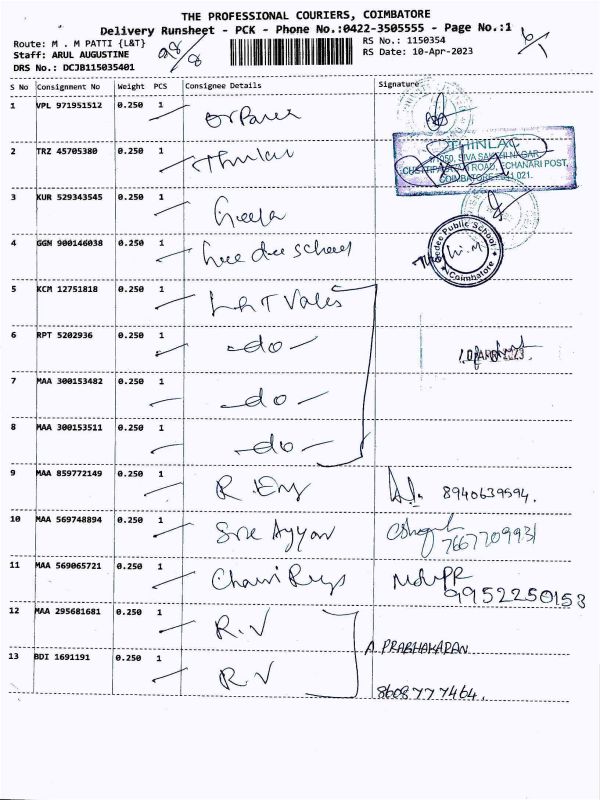 THE PROFESSIONAL COURIERS, COIMBATORE
Delivery Runsheet - PCK - Phone No.:0422-3505555 - Page No.:1
Route: M . M PATTI {L&T} RS No.: 1150354
Staff: ARUL AUGUSTINE RS Date: 10-Apr-2023
DRS No.: DCJB115035401
S No Consignment No Weight PCS Consignee Details Signature
1 VPL 971951512 0.250 1
2 TRZ 45705380 0.250 1 Thinlac
THINLAC
COIMBATORE
3 KUR 529343545 0.250 1 Geeja
4 GGN 900146038 0.250 1 Gee dee school
Public School
Coimbatore
5 KCM 12751818 0.250 1 L & T Valves
6 RPT 5202936 0.250 1 -do-
10 APR 2023
7 MAA 300153482 0.250 1 -do-
8 MAA 300153511 0.250 1 -do-
9 MAA 859772149 0.250 1 R. Eng 8940639594.
10 MAA 569748894 0.250 1 Sree Ayyan
7667709931
11 MAA 569065721 0.250 1
9952250153
12 MAA 295681681 0.250 1 R.V
A. PRABHAKARAN
13 BDI 1691191 0.250 1 R.V
8608777464.